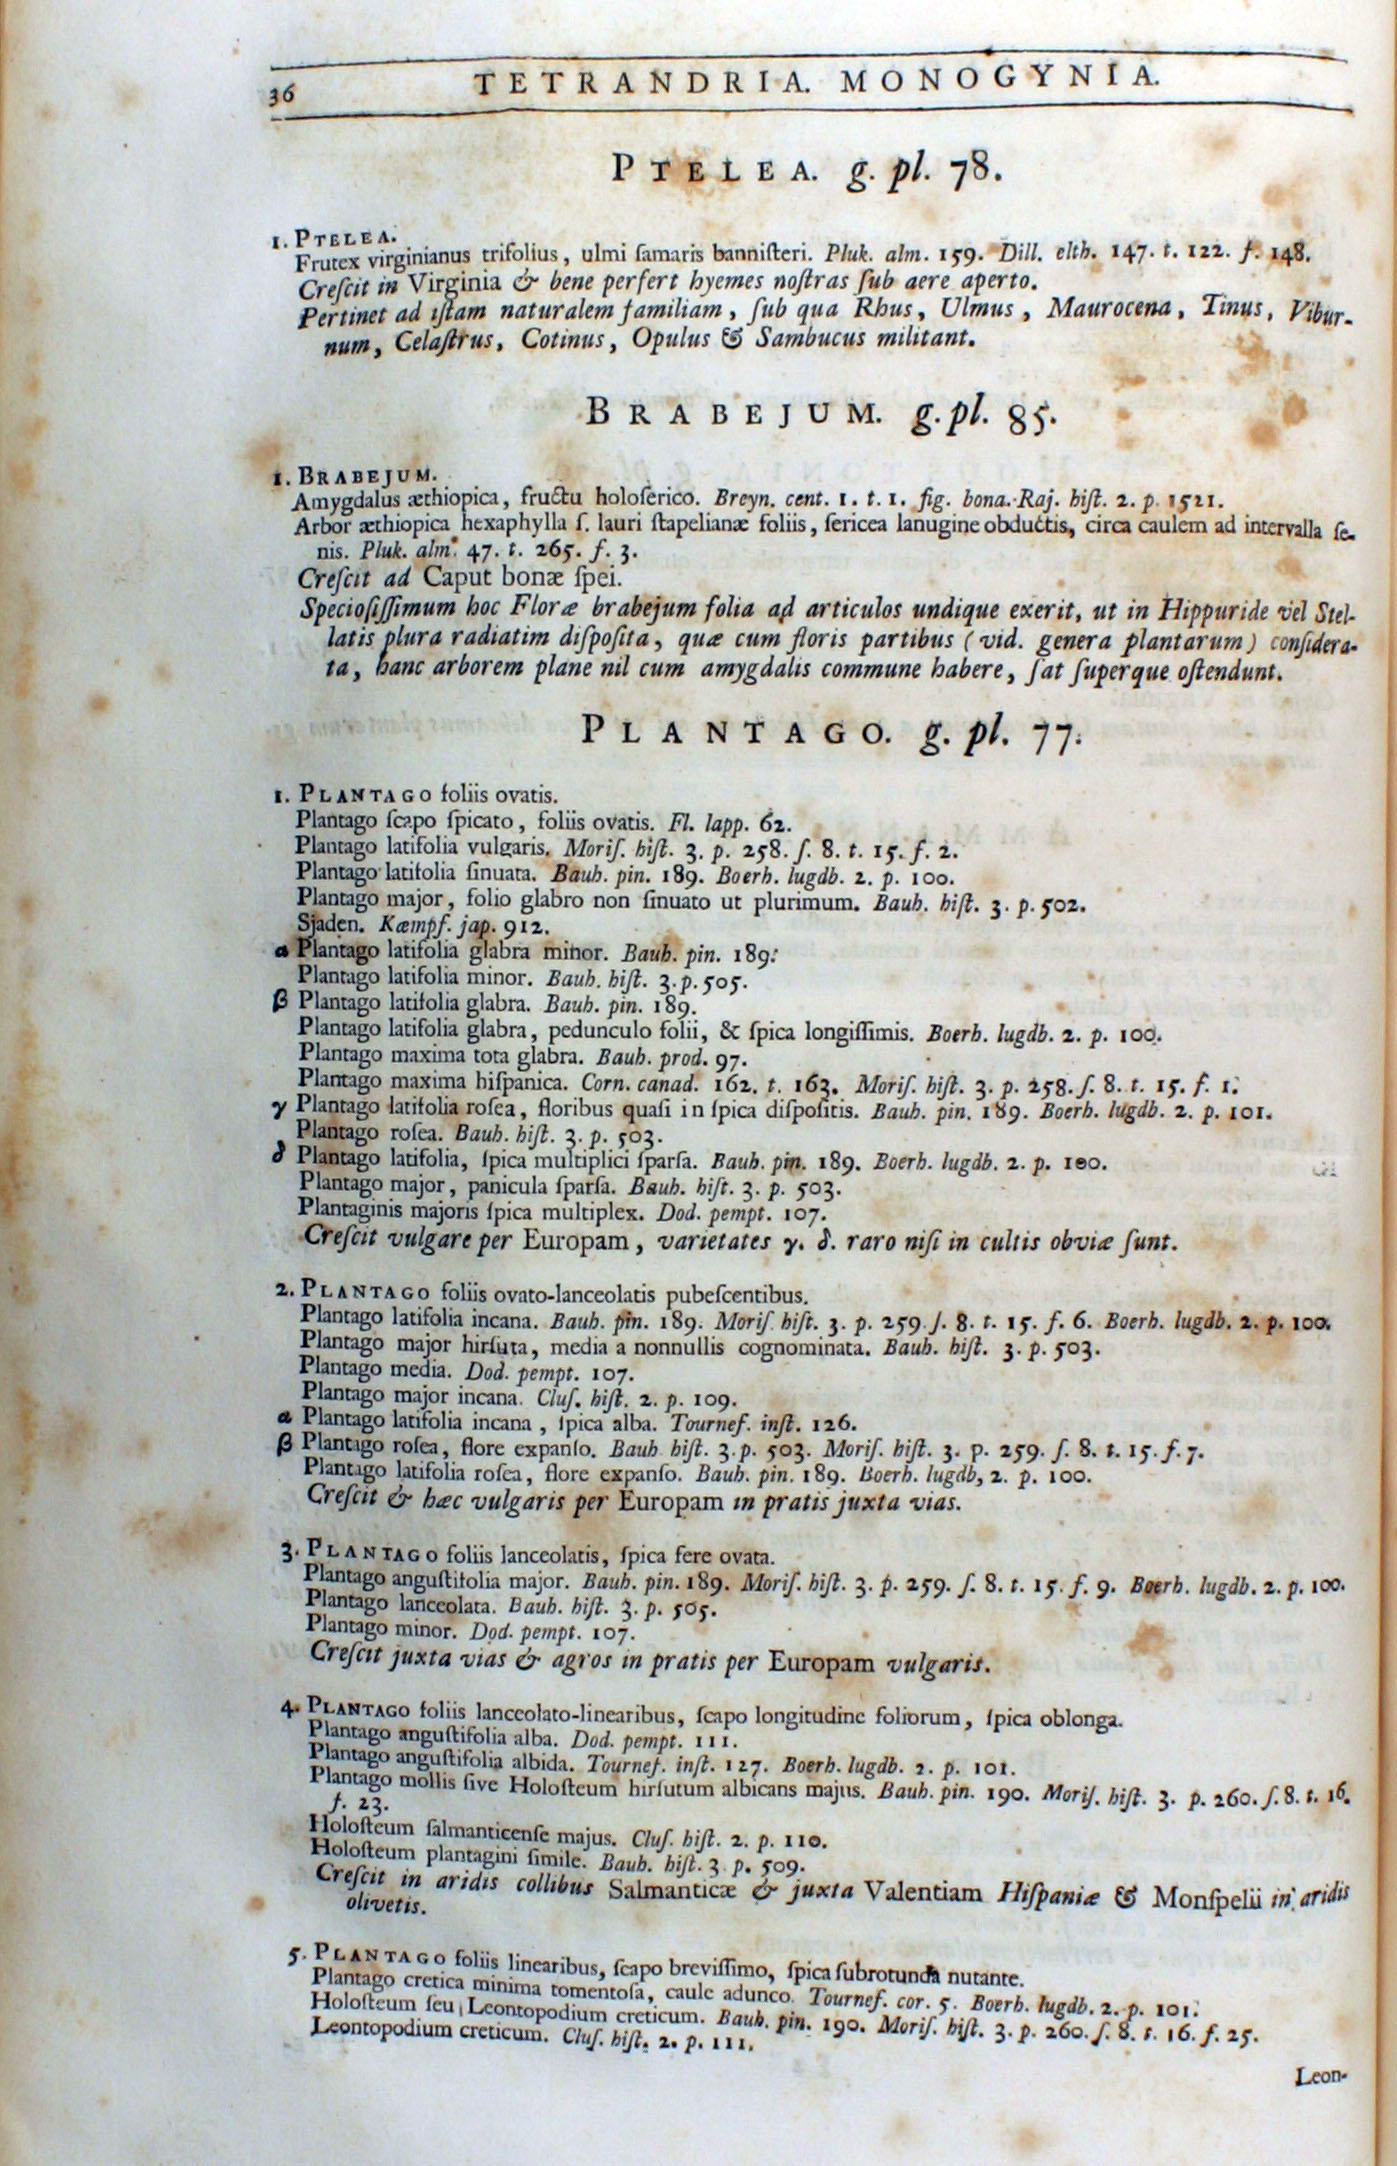 36 TETRANDRIA. MONOGYNIA.
PTELEA. g. pl. 78.
1. PTELEA.
Frutex virginianus trifolius, ulmi ſamaris banniſteri. Pluk. alm. 159. Dill. elth. 147. t. 122. f. 148.
Creſcit in Virginia & bene perfert hyemes noſtras ſub aere aperto.
Pertinet ad iſtam naturalem familiam, ſub qua Rhus, Ulmus, Maurocena, Tinus, Vibur-
num, Celaſtrus, Cotinus, Opulus & Sambucus militant.
BRABEJUM. g. pl. 85.
1. BRABEJUM.
Amygdalus æthiopica, fructu holoſerico. Breyn. cent. 1. t. 1. fig. bona. Raj. hiſt. 2. p. 1521.
Arbor æthiopica hexaphylla ſ. lauri ſtapelianæ foliis, ſericea lanugine obductis, circa caulem ad intervalla ſe-
nis. Pluk. alm. 47. t. 265. f. 3.
Creſcit ad Caput bonæ ſpei.
Specioſiſſimum hoc Floræ brabejum folia ad articulos undique exerit, ut in Hippuride vel Stel-
latis plura radiatim diſpoſita, quæ cum floris partibus (vid. genera plantarum) conſidera-
ta, hanc arborem plane nil cum amygdalis commune habere, ſat ſuperque oſtendunt.
PLANTAGO. g. pl. 77.
1. PLANTAGO foliis ovatis.
Plantago ſcapo ſpicato, foliis ovatis. Fl. lapp. 62.
Plantago latifolia vulgaris. Moriſ. hiſt. 3. p. 258. ſ. 8. t. 15. f. 2.
Plantago latifolia ſinuata. Bauh. pin. 189. Boerh. lugdb. 2. p. 100.
Plantago major, folio glabro non ſinuato ut plurimum. Bauh. hiſt. 3. p. 502.
Sjaden. Kæmpf. jap. 912.
α Plantago latifolia glabra minor. Bauh. pin. 189.
Plantago latifolia minor. Bauh. hiſt. 3. p. 505.
β Plantago latifolia glabra. Bauh. pin. 189.
Plantago latifolia glabra, pedunculo folii, & ſpica longiſſimis. Boerh. lugdb. 2. p. 100.
Plantago maxima tota glabra. Bauh. prod. 97.
Plantago maxima hiſpanica. Corn. canad. 162. t. 163. Moriſ. hiſt. 3. p. 258. ſ. 8. t. 15. f. 1.
γ Plantago latifolia roſea, floribus quaſi in ſpica diſpoſitis. Bauh. pin. 189. Boerh. lugdb. 2. p. 101.
Plantago roſea. Bauh. hiſt. 3. p. 503.
δ Plantago latifolia, ſpica multiplici ſparſa. Bauh. pin. 189. Boerh. lugdb. 2. p. 100.
Plantago major, panicula ſparſa. Bauh. hiſt. 3. p. 503.
Plantaginis majoris ſpica multiplex. Dod. pempt. 107.
Creſcit vulgare per Europam, varietates γ. δ. raro niſi in cultis obviæ ſunt.
2. PLANTAGO foliis ovato-lanceolatis pubeſcentibus.
Plantago latifolia incana. Bauh. pin. 189. Moriſ. hiſt. 3. p. 259. ſ. 8. t. 15. f. 6. Boerh. lugdb. 2. p. 100.
Plantago major hirſuta, media a nonnullis cognominata. Bauh. hiſt. 3. p. 503.
Plantago media. Dod. pempt. 107.
Plantago major incana. Cluſ. hiſt. 2. p. 109.
α Plantago latifolia incana, ſpica alba. Tournef. inſt. 126.
β Plantago roſea, flore expanſo. Bauh hiſt. 3. p. 503. Moriſ. hiſt. 3. p. 259. ſ. 8. t. 15. f. 7.
Plantago latifolia roſea, flore expanſo. Bauh. pin. 189. Boerh. lugdb, 2. p. 100.
Creſcit & hæc vulgaris per Europam in pratis juxta vias.
3. PLANTAGO foliis lanceolatis, ſpica fere ovata.
Plantago anguſtifolia major. Bauh. pin. 189. Moriſ. hiſt. 3. p. 259. ſ. 8. t. 15. f. 9. Boerh. lugdb. 2. p. 100.
Plantago lanceolata. Bauh. hiſt. 3. p. 505.
Plantago minor. Dod. pempt. 107.
Creſcit juxta vias & agros in pratis per Europam vulgaris.
4. PLANTAGO foliis lanceolato-linearibus, ſcapo longitudine foliorum, ſpica oblonga.
Plantago anguſtifolia alba. Dod. pempt. 111.
Plantago anguſtifolia albida. Tournef. inſt. 127. Boerh. lugdb. 2. p. 101.
Plantago mollis ſive Holoſteum hirſutum albicans majus. Bauh. pin. 190. Moriſ. hiſt. 3. p. 260. ſ. 8. t. 16.
f. 23.
Holoſteum ſalmanticenſe majus. Cluſ. hiſt. 2. p. 110.
Holoſteum plantagini ſimile. Bauh. hiſt. 3. p. 509.
Creſcit in aridis collibus Salmanticæ & juxta Valentiam Hiſpaniæ & Monſpelii in aridis
olivetis.
5. PLANTAGO foliis linearibus, ſcapo breviſſimo, ſpica ſubrotunda nutante.
Plantago cretica minima tomentoſa, caule adunco. Tournef. cor. 5. Boerh. lugdb. 2. p. 101.
Holoſteum ſeu Leontopodium creticum. Bauh. pin. 190. Moriſ. hiſt. 3. p. 260. ſ. 8. t. 16. f. 25.
Leontopodium creticum. Cluſ. hiſt. 2. p. 111.
Leon-